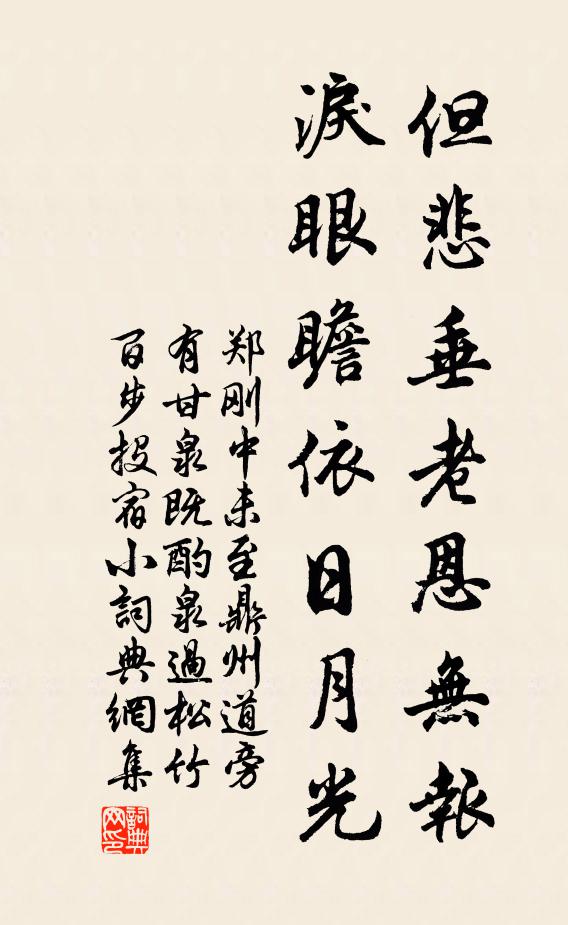 但悲垂老恩無報
淚眼瞻依日月光
郑刚中未至鼎州道旁
有甘泉既酌泉過松竹
百步投宿小詞典網集
詞典網印